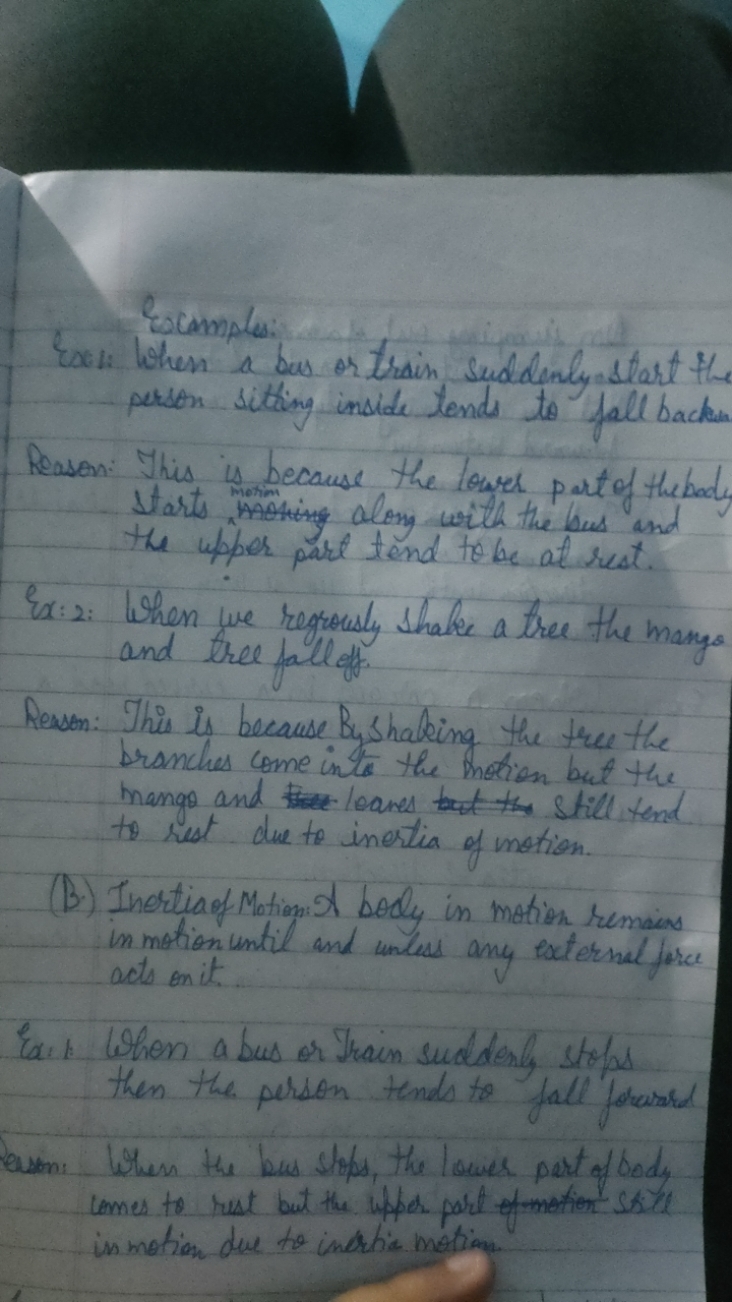 Examples:
Ex 1: When a bus or train suddenly start the
person sitting inside tends to fall backw
Reason: This is because the lower part of the body
starts motion along with the bus and
the upper part tend to be at rest.
Ex: 2: When we regrously shake a tree the mango
and tree fall off.
Reason: This is because By shaking the tree the
branches come into the motion but the
mango and leaves still tend
to rest due to inertia of motion.
(B.) Inertia of Motion: A body in motion remains
in motion until and unless any external force
acts on it.
Ex: 1: When a bus or Train suddenly stops
then the person tends to fall forward
Reason: When the bus stops, the lower part of body
comes to rest but the upper part still
in motion due to inertia motion.